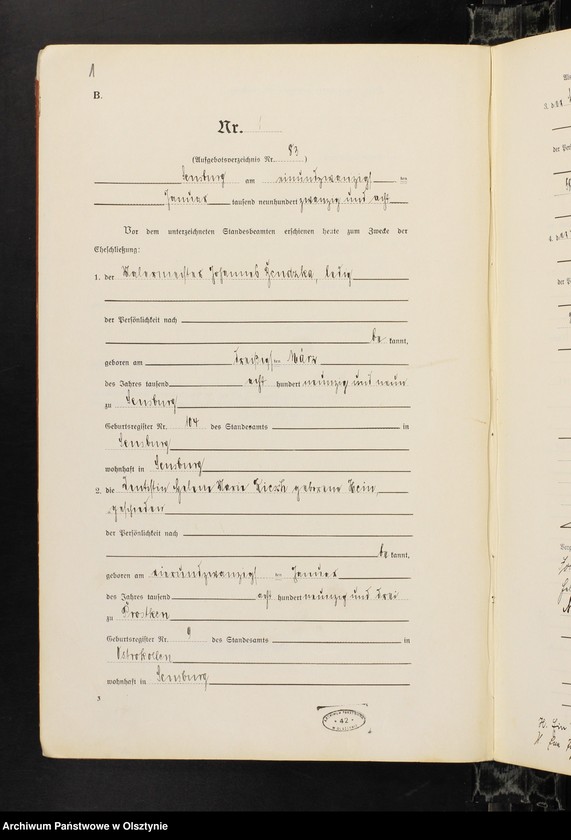 1
B.
Nr. 1
(Aufgebotsverzeichnis Nr. 83)
Sensburg am einundzwanzigsten
Januar tausend neunhundert zwanzig und acht
Vor dem unterzeichneten Standesbeamten erschienen heute zum Zwecke der
Eheschließung:
1. der Malermeister Johannes, ledig
der Persönlichkeit nach
be kannt,
geboren am dreißigsten März
des Jahres tausend acht hundert neunzig und neun
zu Sensburg
Geburtsregister Nr. 104 des Standesamts in
Sensburg
wohnhaft in Sensburg
2. die Dentistin Helene Marie geborene Hein,
geschieden
der Persönlichkeit nach
be kannt,
geboren am vierundzwanzigsten Januar
des Jahres tausend acht hundert neunzig und drei
zu Prostken
Geburtsregister Nr. 9 des Standesamts in
Ostrokollen
wohnhaft in Sensburg
3
42
Archiwum Państwowe w Olsztynie